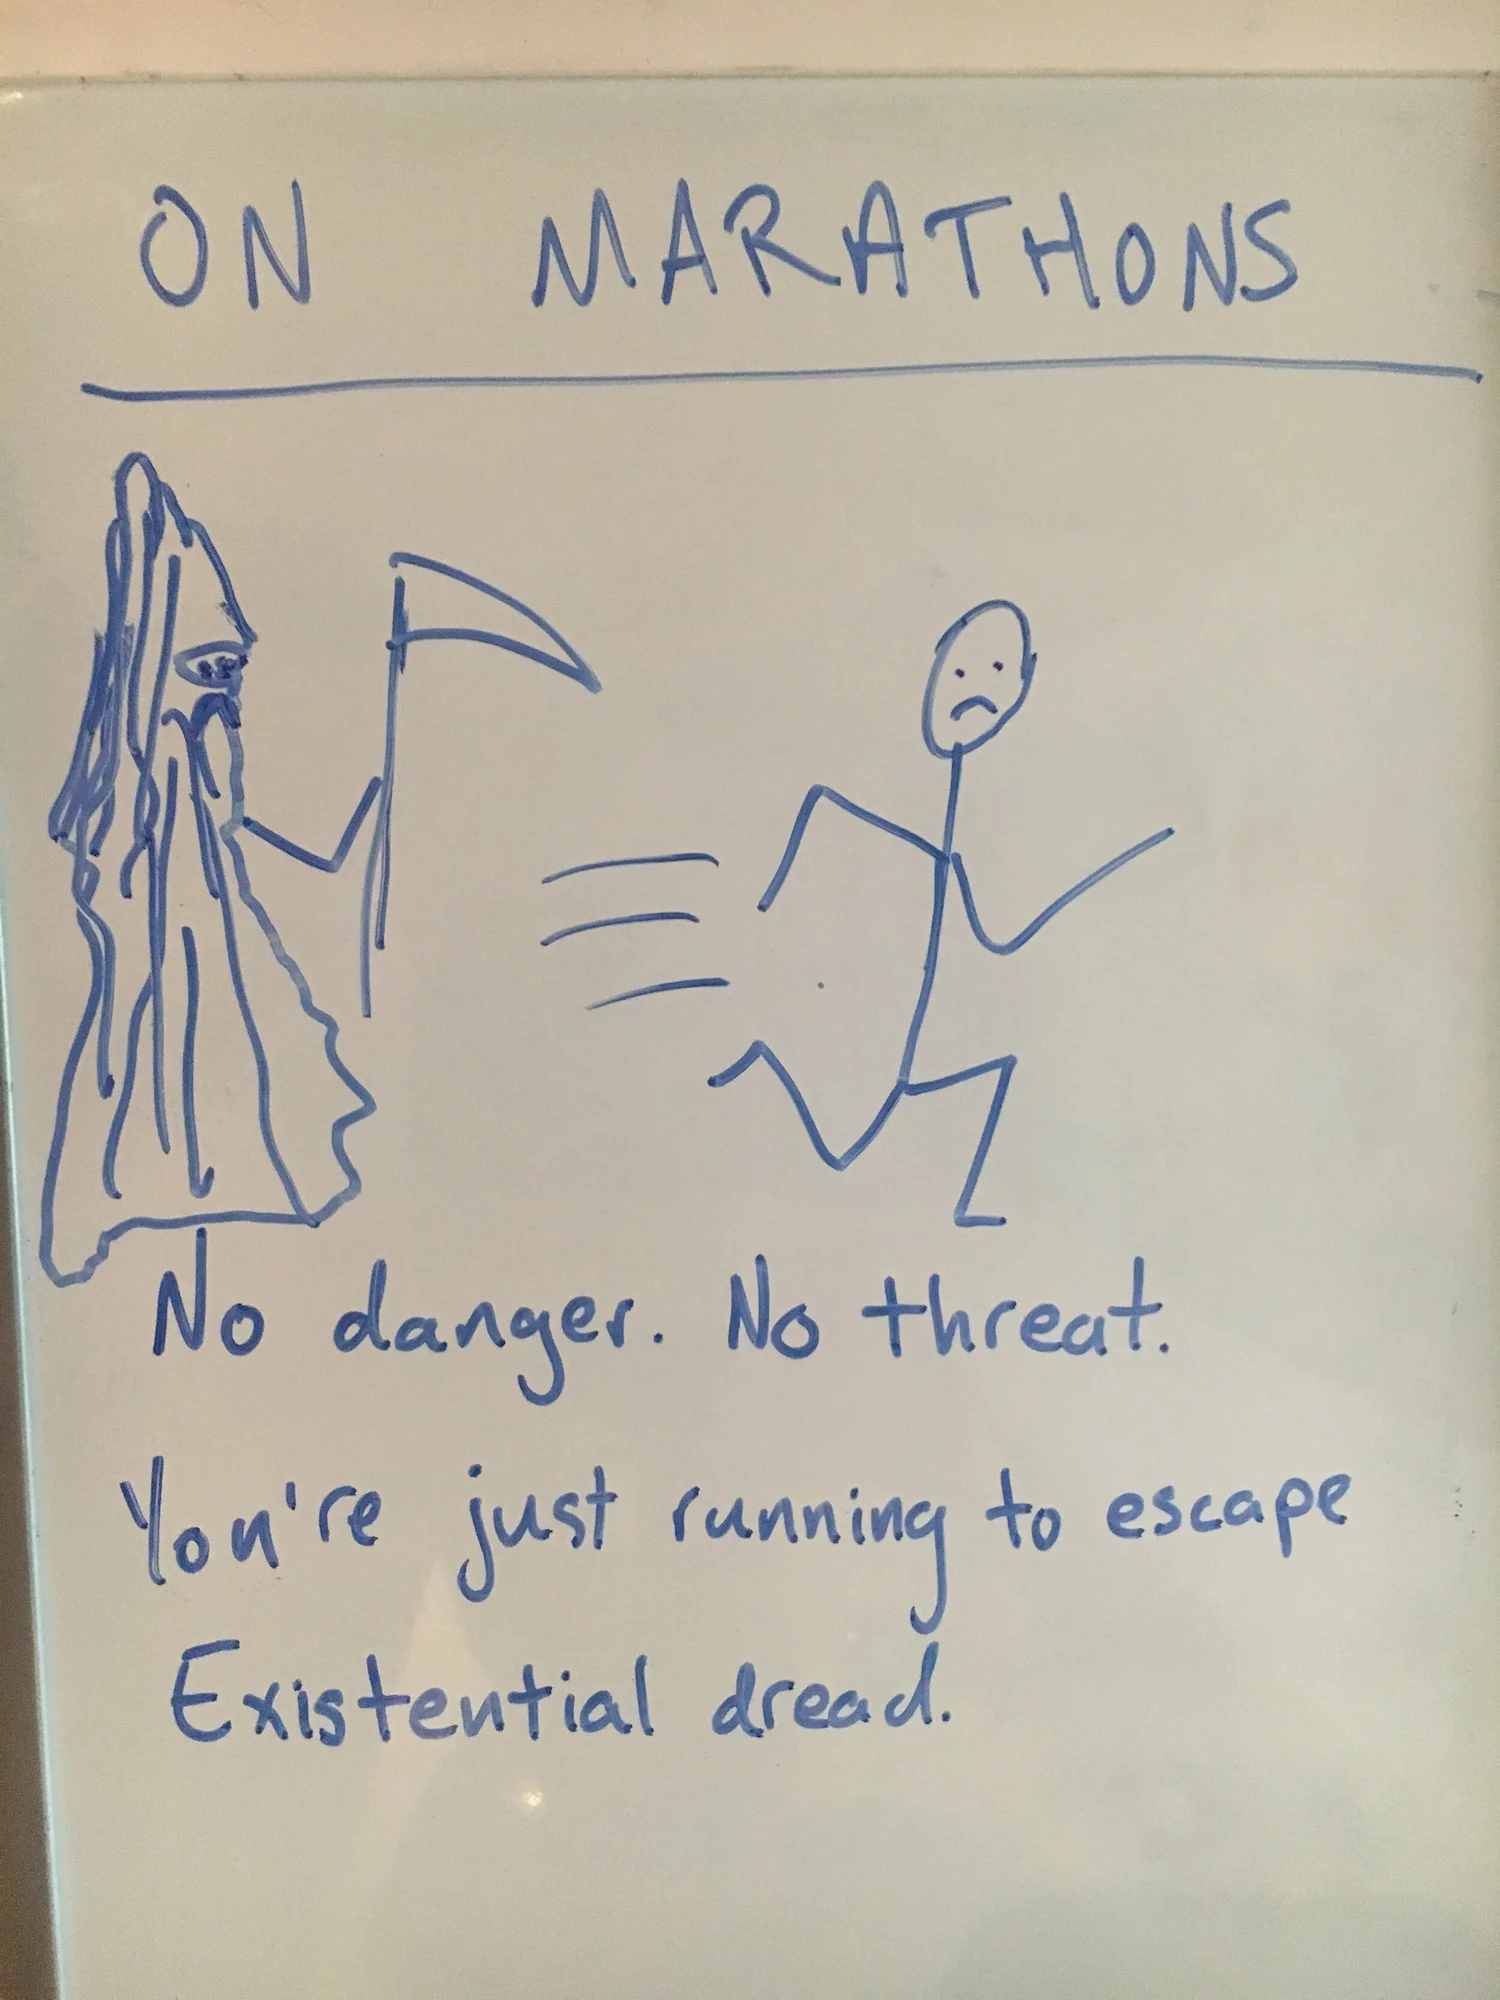 ON MARATHONS
No danger. No threat.
You're just running to escape
Existential dread.